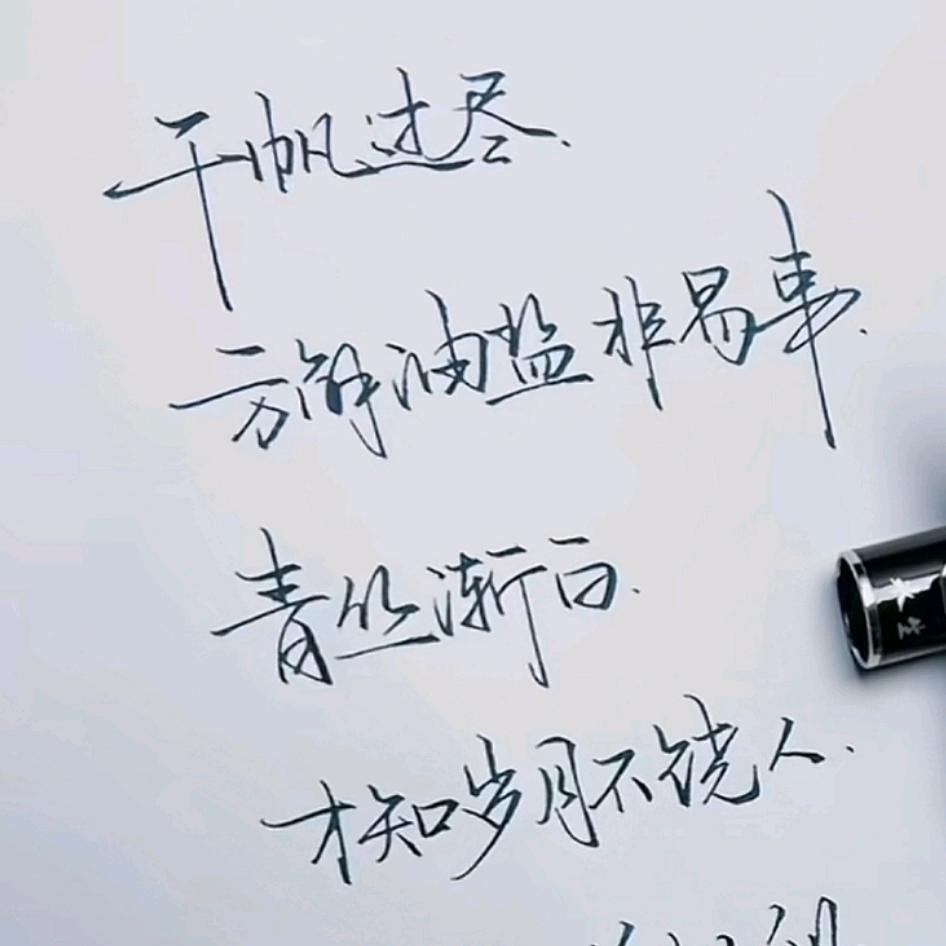 千帆过尽.
方解油盐非易事.
青丝渐白.
才知岁月不饶人.